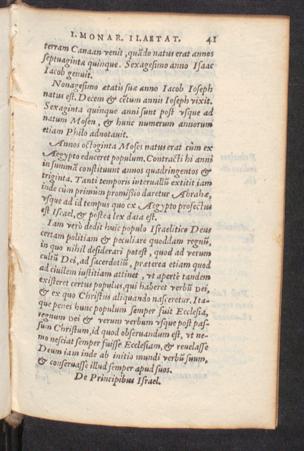 I. MONAR. II. AETAT. 41
terram Canaan venit, quãdo natus erat annos
septuaginta quinque. Sexagesimo anno Isaac
Iacob genuit.
Nonagesimo ætatis suæ anno Iacob Ioseph
natus est. Decem & cẽtum annis Ioseph vixit.
Sexaginta quinque anni sunt post vsque ad
natum Mosen, & hunc numerum annorum
etiam Philo adnotauit.
Annos octoginta Moses natus erat cùm ex
Aegypto educeret populum. Contracti hi anni
in summã constituunt annos quadringentos &
triginta. Tanti temporis interuallũ extitit iam
inde cùm primùm promissio daretur Abrahæ,
vsque ad id tempus quo ex Aegypto profectus
est Israel, & posteà lex data est.
Iam verò dedit huic populo Israelitico Deus
certam politiam & peculiare quoddam regnũ,
in quo nihil desiderari potest, quod ad verum
cultũ Dei, ad sacerdotiũ, præterea etiam quod
ad ciuilem iustitiam attinet, vt apertè tandem
existeret certus populus, qui haberet verbũ Dei,
& ex quo Christus aliquando nasceretur. Ita-
que penes hunc populum semper fuit Ecclesia,
regnum Dei & verum verbum vsque post pas-
sum Christum, id quod obseruandum est, vt ne-
mo nesciat semper fuisse Ecclesiam, & reuelasse
Deum iam inde ab initio mundi verbũ suum,
& conseruasse illud semper apud suos.
De Principibus Israel.